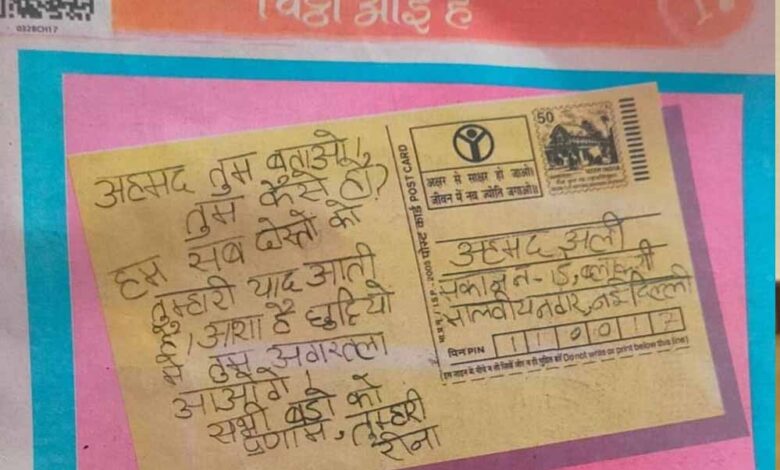 0328CH17
चिट्ठी आई है
अहमद तुम बताओ!
तुम कैसे हो?
हम सब दोस्तों को
तुम्हारी याद आती
। आशा है छुट्टियों
तुम अगरतला
आओगे।
सभी बड़ों को
प्रणाम, तुम्हारी
रीना
पोस्ट कार्ड POST CARD
अक्षर से साक्षर हो जाओ।
जीवन में नव ज्योति जगाओ॥
50
अहमद अली
मालवीय नगर, नई दिल्ली
पिन PIN 110017
इस लाइन के नीचे न तो लिखें और न ही मुद्रित करें (Do not write or print below this line)